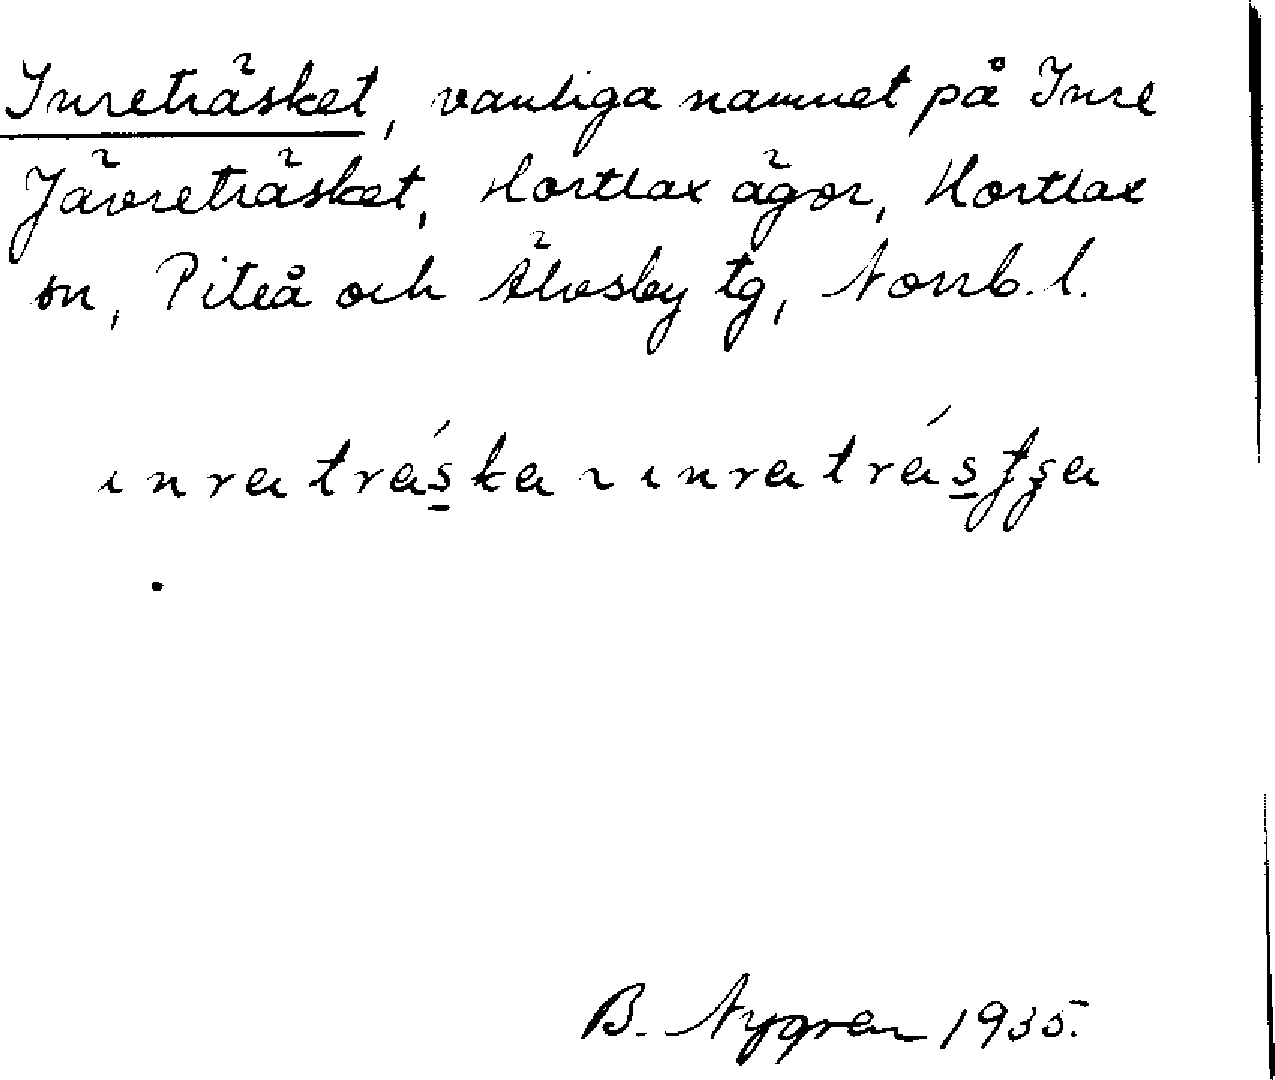 Inreträsket, vanliga namnet på Inre
Jävreträsket, Hortlax ägor, Hortlax
sn, Piteå och Älvsby tg, Norrb. l.
ınra tráska ~ ınra trásʈʂa
B. Nygren 1935.